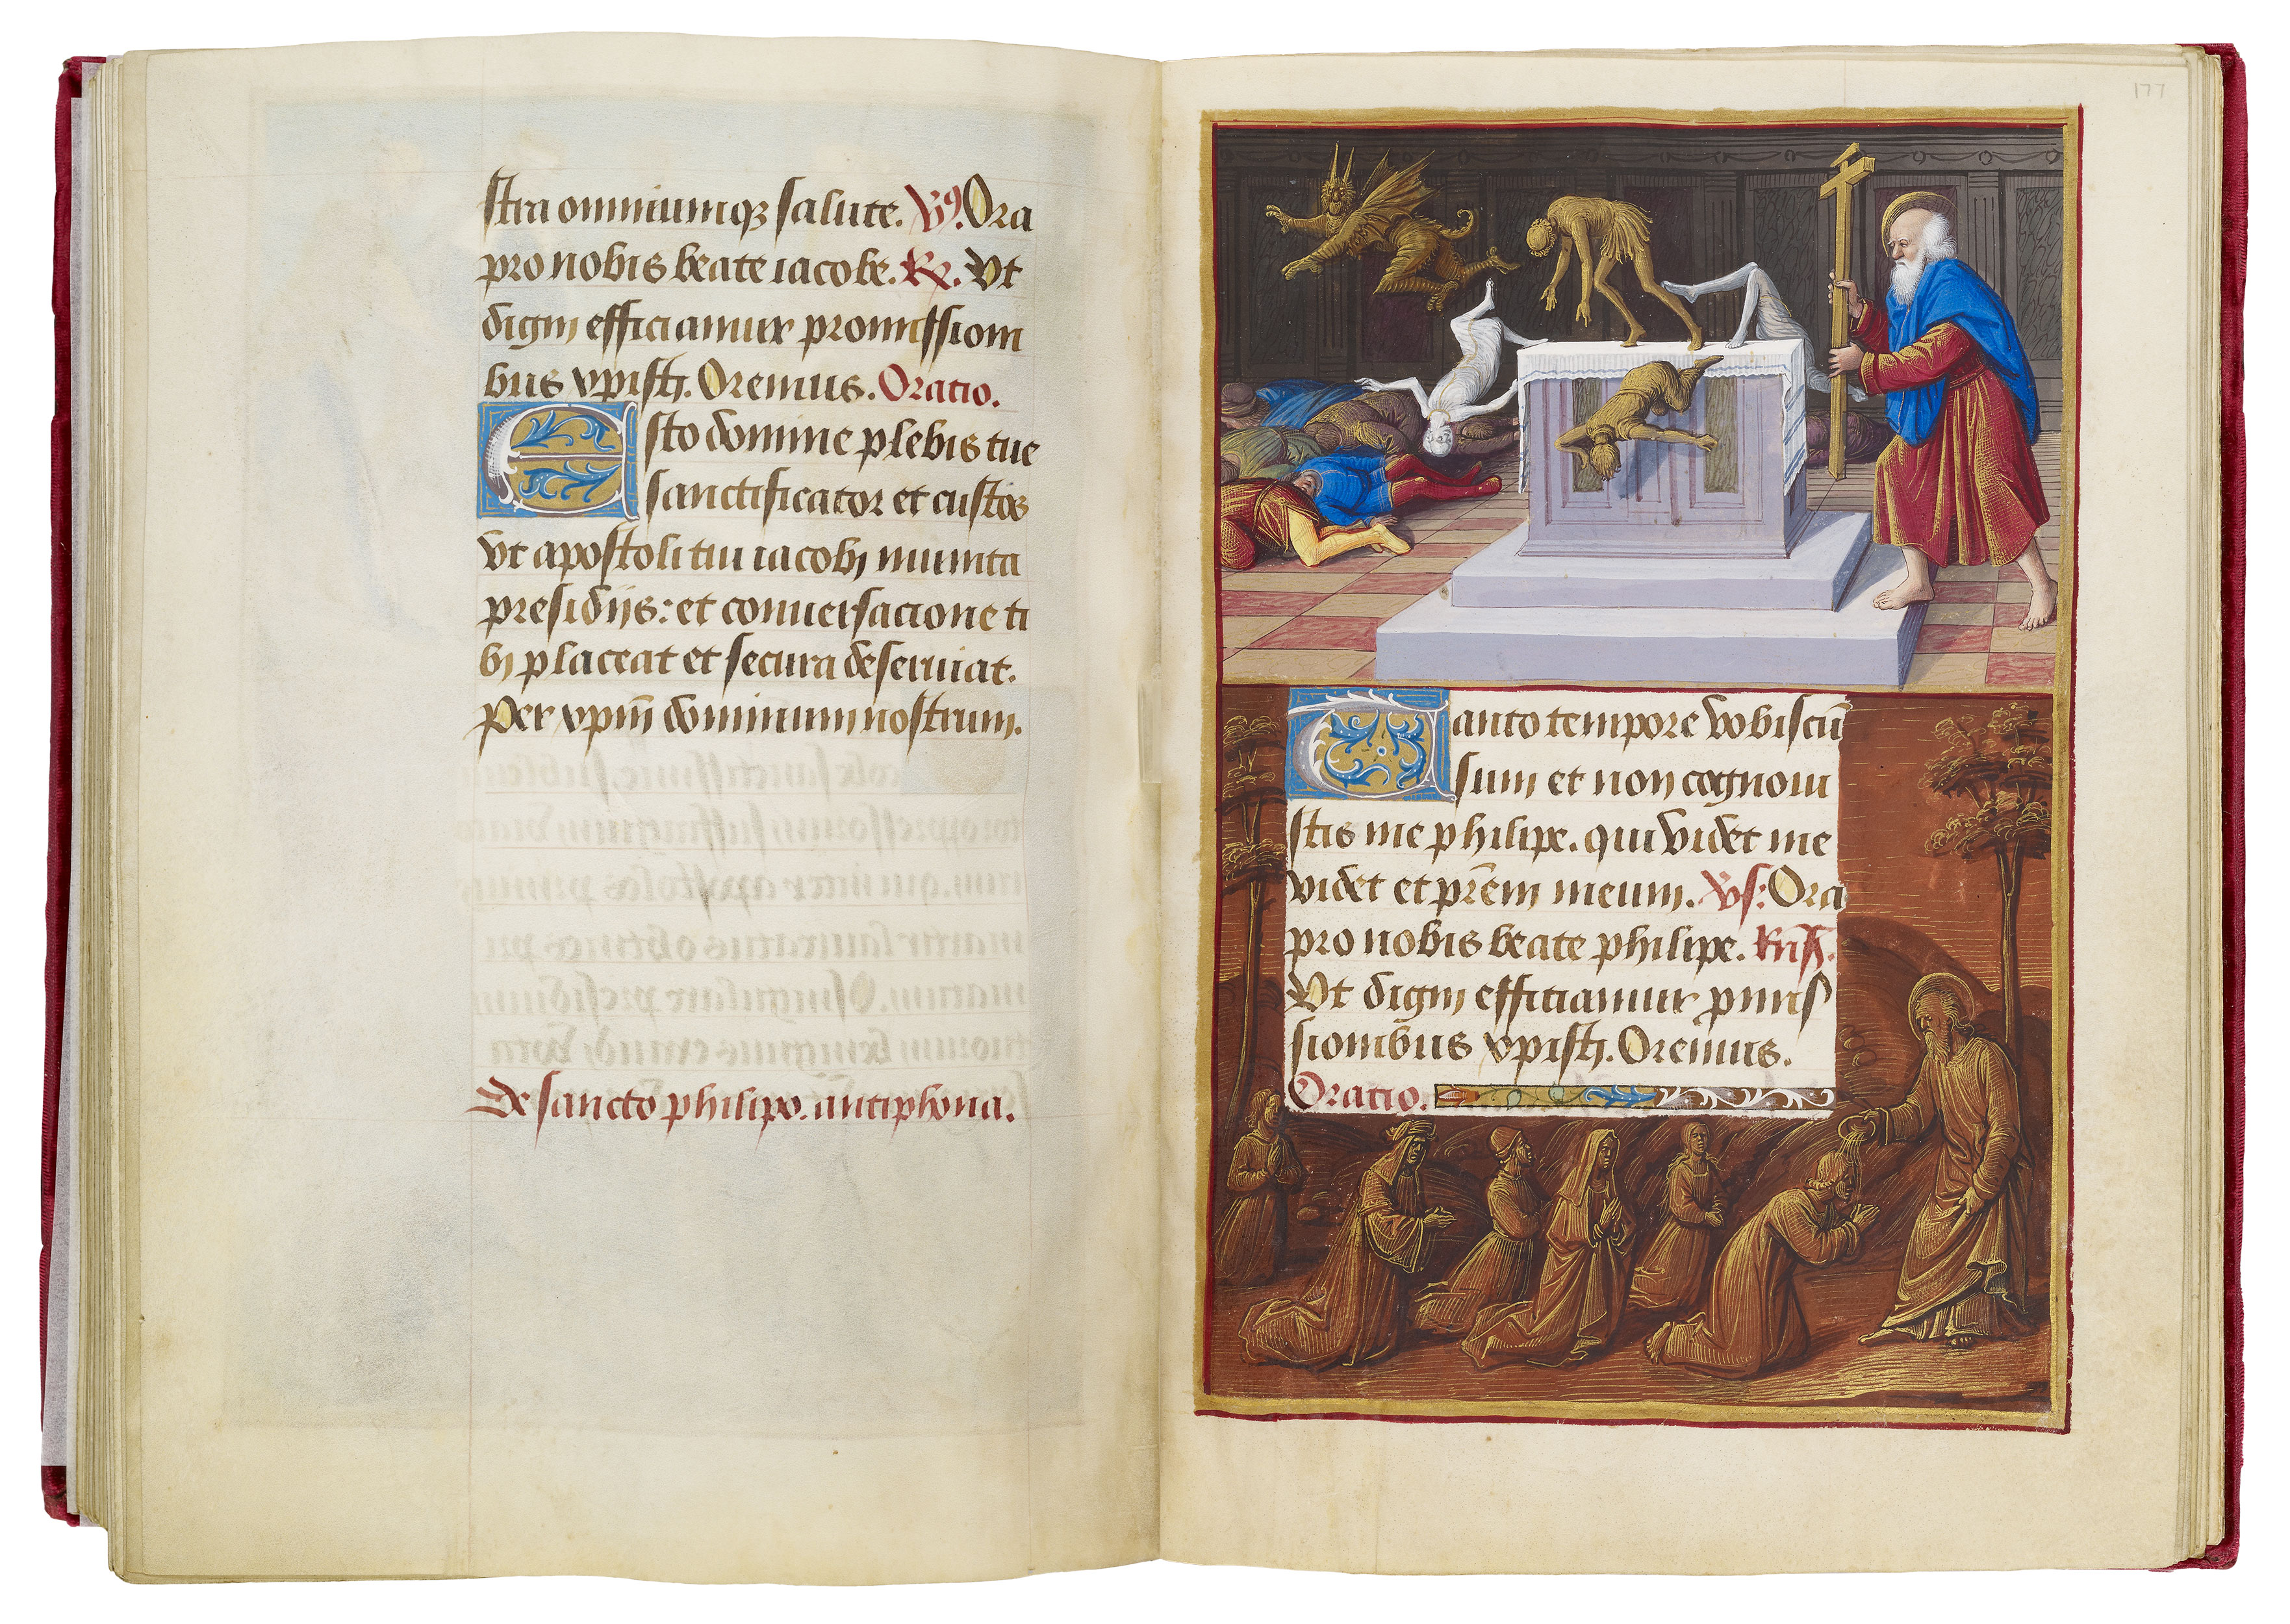 stra omniumq; salute. V9. Ora
pro nobis beate iacobe. R. Vt
digni efficiamur promission
bus xpisti. Oremus. Oratio.
Esto domine plebis tue
sanctificator et custos
vt apostoli tui iacobi munita
presidijs: et conuersacione ti
bi placeat et secura deseruiat.
Per xpm̄ dominum nostrum.
De sancto philipo. antiphona.
177
Tanto tempore vobiscū
sum et non cognoui
stis me philipe. qui videt me
videt et prēm meum. Vs: Ora
pro nobis beate philipe.
Vt digni efficiamur pmis
sionibus xpisti. Oremus.
Oratio.